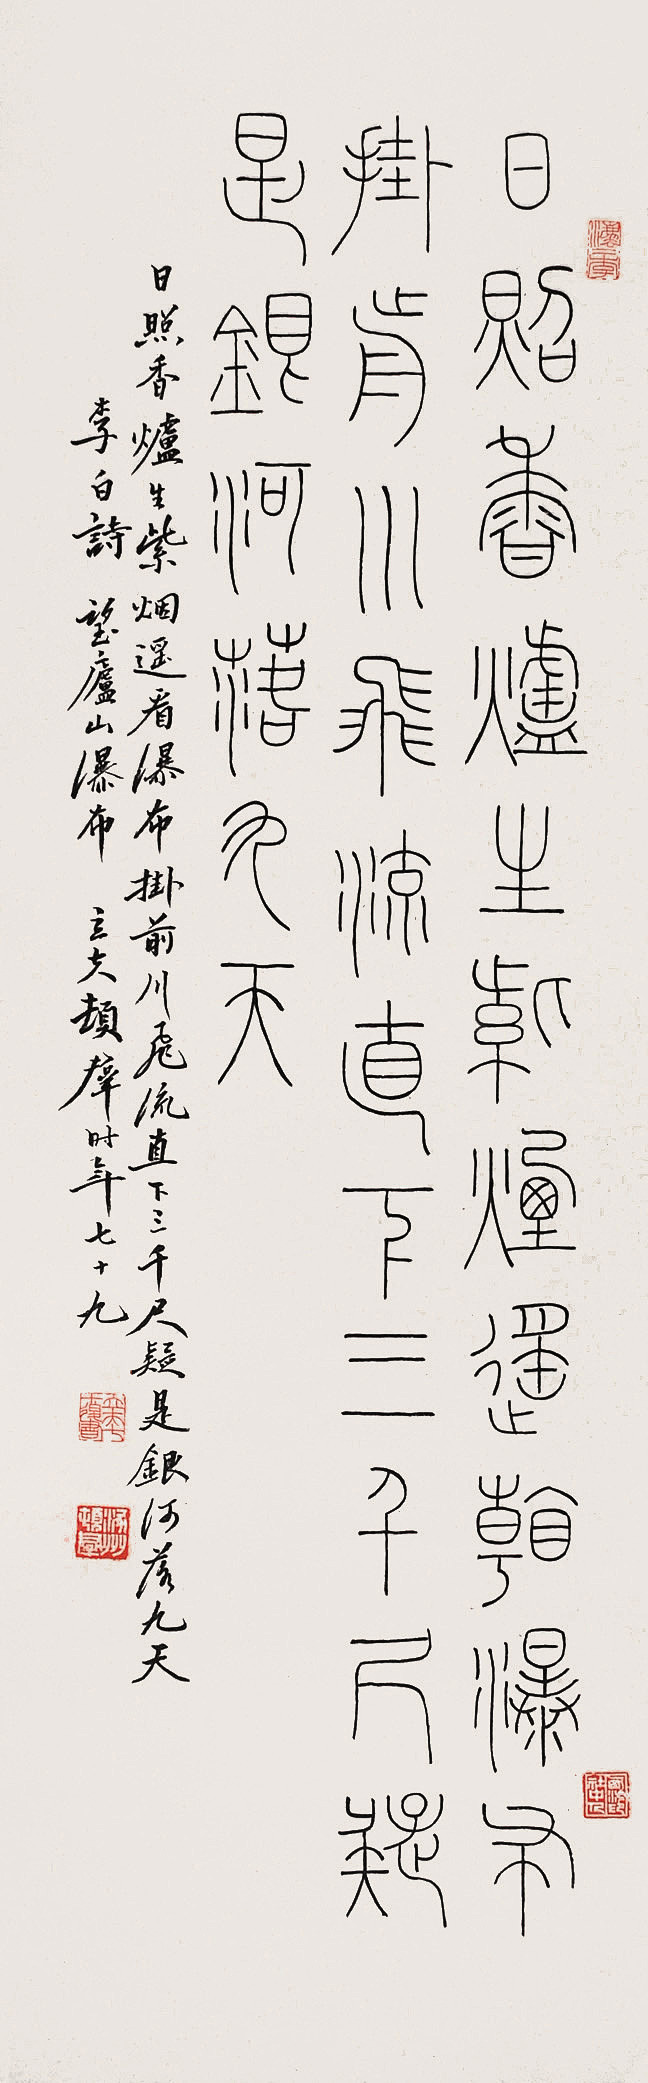 日照香爐生紫煙遙看瀑布
掛前川飛流直下三千尺疑
是銀河落九天
日照香爐生紫烟遥看瀑布掛前川飛流直下三千尺疑是銀河落九天
李白詩 望廬山瀑布 立夫頓羣时年七十九
涿州頓羣